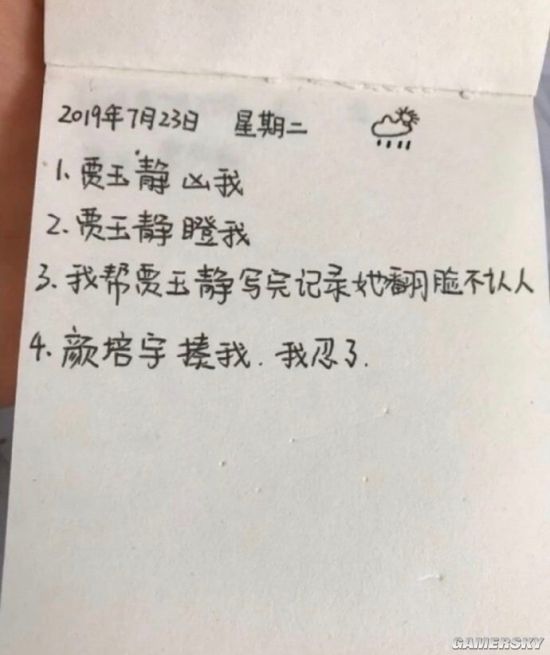 2019年7月23日 星期二
1.贾玉静凶我
2.贾玉静瞪我
3.我帮贾玉静写完记录她翻脸不认人
4.颜培宇揍我.我忍了.
GAMERSKY